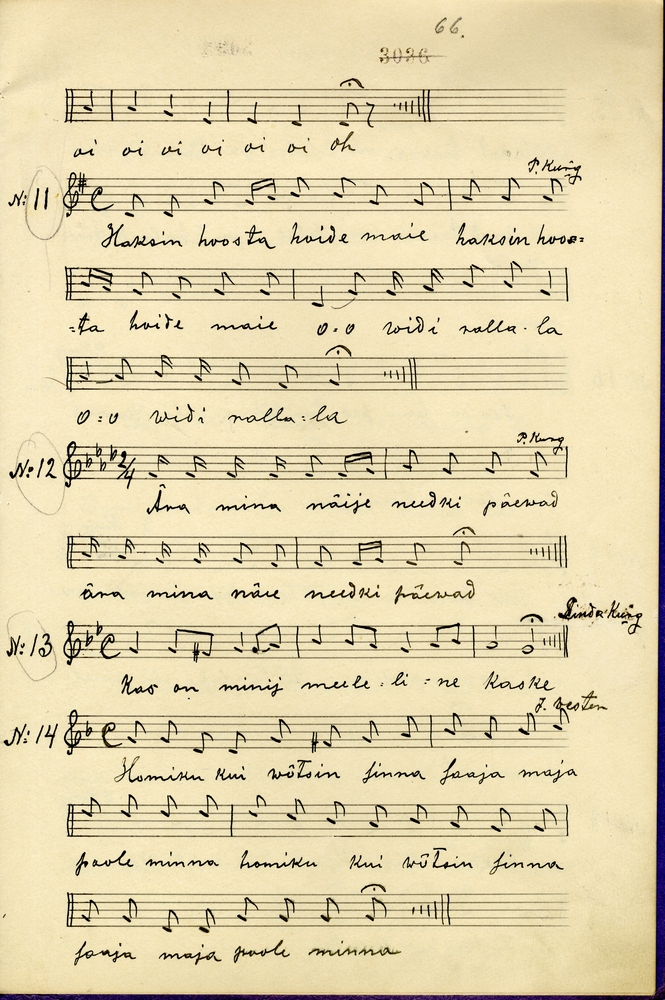 66.
3036
oi oi oi oi oi oi oh
P. Kung
No 11
Haksin hoosta hoide maie haksin hoos=
=ta hoide maie o:o widi ralla-la
o:o widi ralla:la
P. Kung
No 12
Ära mina näije needki päewad
ära mina näie needki päewad
Linda Kung
No 13
Kas on minij meele:li:ne kaske
J. Westen
No 14
Homiku kui wõtsin sinna saaja maja
poole minna homiku kui wõtsin sinna
saaja maja poole minna